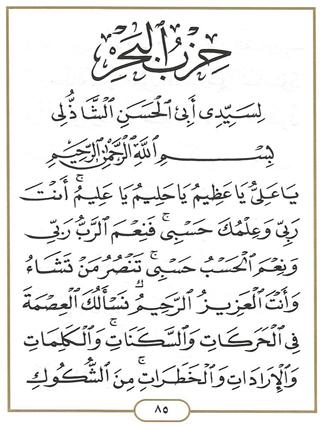 حِزْبُ الْبَحْرِ
لِسَيِّدِى أَبِى الْحَسَنِ الشَّاذُلِى
بِسْمِ اللَّهِ الرَّحْمَٰنِ الرَّحِيمِ
يَا عَلِىُّ يَا عَظِيمُ يَا حَلِيمُ يَا عَلِيمُ أَنْتَ
رَبِّى وَعِلْمُكَ حَسْبِى فَنِعْمَ الرَّبُّ رَبِّى
وَنِعْمَ الْحَسْبُ حَسْبِى تَنْصُرُ مَنْ تَشَاءُ
وَأَنْتَ الْعَزِيزُ الرَّحِيمُ نَسْأَلُكَ الْعِصْمَةَ
فِى الْحَرَكَاتِ وَالسَّكَنَاتِ وَالْكَلِمَاتِ
وَالْإِرَادَاتِ وَالْخَطَرَاتِ مِنَ الشُّكُوكِ
٨٥